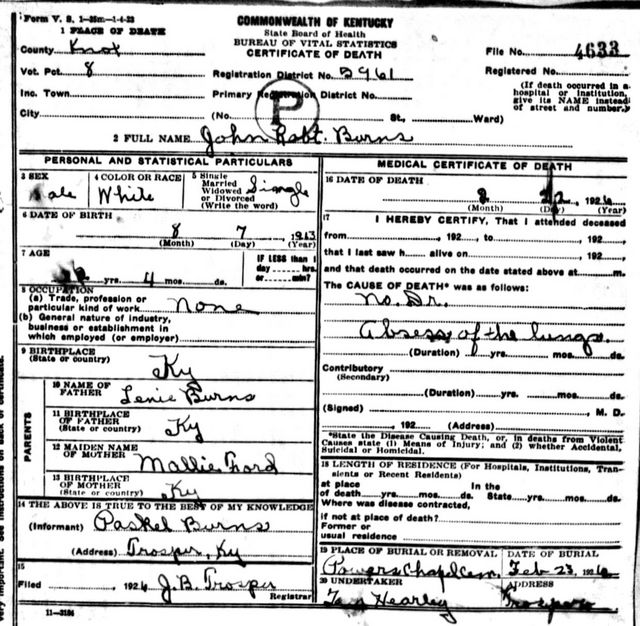 Form V. S. 1-35m-1-4-23
COMMONWEALTH OF KENTUCKY
State Board of Health
BUREAU OF VITAL STATISTICS
CERTIFICATE OF DEATH
1 PLACE OF DEATH
County Knox
File No. 4633
Vot. Pct. 8
Registration District No. 3961
Registered No.
Inc. Town
Primary Registration District No.
(If death occurred in a hospital or institution, give its NAME instead of street and number.)
City (No. St., Ward)
P
2 FULL NAME John Robt. Burns
PERSONAL AND STATISTICAL PARTICULARS
3 SEX Male
4 COLOR OR RACE White
5 Single Married Widowed or Divorced (Write the word) Single
6 DATE OF BIRTH
8 7
(Month) (Day) (Year)
7 AGE
yrs. 4 mos. ds.
IF LESS than 1 day hrs. or min?
8 OCCUPATION
(a) Trade, profession or particular kind of work None
(b) General nature of industry, business or establishment in which employed (or employer)
9 BIRTHPLACE
(State or country) Ky
PARENTS
10 NAME OF FATHER Lenie Burns
11 BIRTHPLACE OF FATHER
(State or country) Ky
12 MAIDEN NAME OF MOTHER Mallie Ford
13 BIRTHPLACE OF MOTHER
(State or country) Ky
14 THE ABOVE IS TRUE TO THE BEST OF MY KNOWLEDGE
(Informant) Paskel Burns
(Address) Trosper, Ky
15
Filed , 1926 J.B. Trosper
Registrar
11-3184
MEDICAL CERTIFICATE OF DEATH
16 DATE OF DEATH
2 22, 1926
(Month) (Day) (Year)
17 I HEREBY CERTIFY, That I attended deceased
from , 192 , to , 192 ,
that I last saw h alive on , 192 ,
and that death occurred on the date stated above at m.
The CAUSE OF DEATH* was as follows:
No. Dr.
Absess of the lungs.
(Duration) yrs. mos. ds.
Contributory
(Secondary)
(Duration) yrs. mos. ds.
(Signed) , M. D.
, 192 (Address)
*State the Disease Causing Death, or, in deaths from Violent Causes state (1) Means of Injury; and (2) whether Accidental, Suicidal or Homicidal.
18 LENGTH OF RESIDENCE (For Hospitals, Institutions, Transients or Recent Residents)
at place of death yrs. mos. ds. In the State yrs. mos. ds.
Where was disease contracted,
if not at place of death?
Former or usual residence
19 PLACE OF BURIAL OR REMOVAL DATE OF BURIAL
Powers Chapel Cem. Feb 23, 1926
20 UNDERTAKER ADDRESS
Hearley Trosper